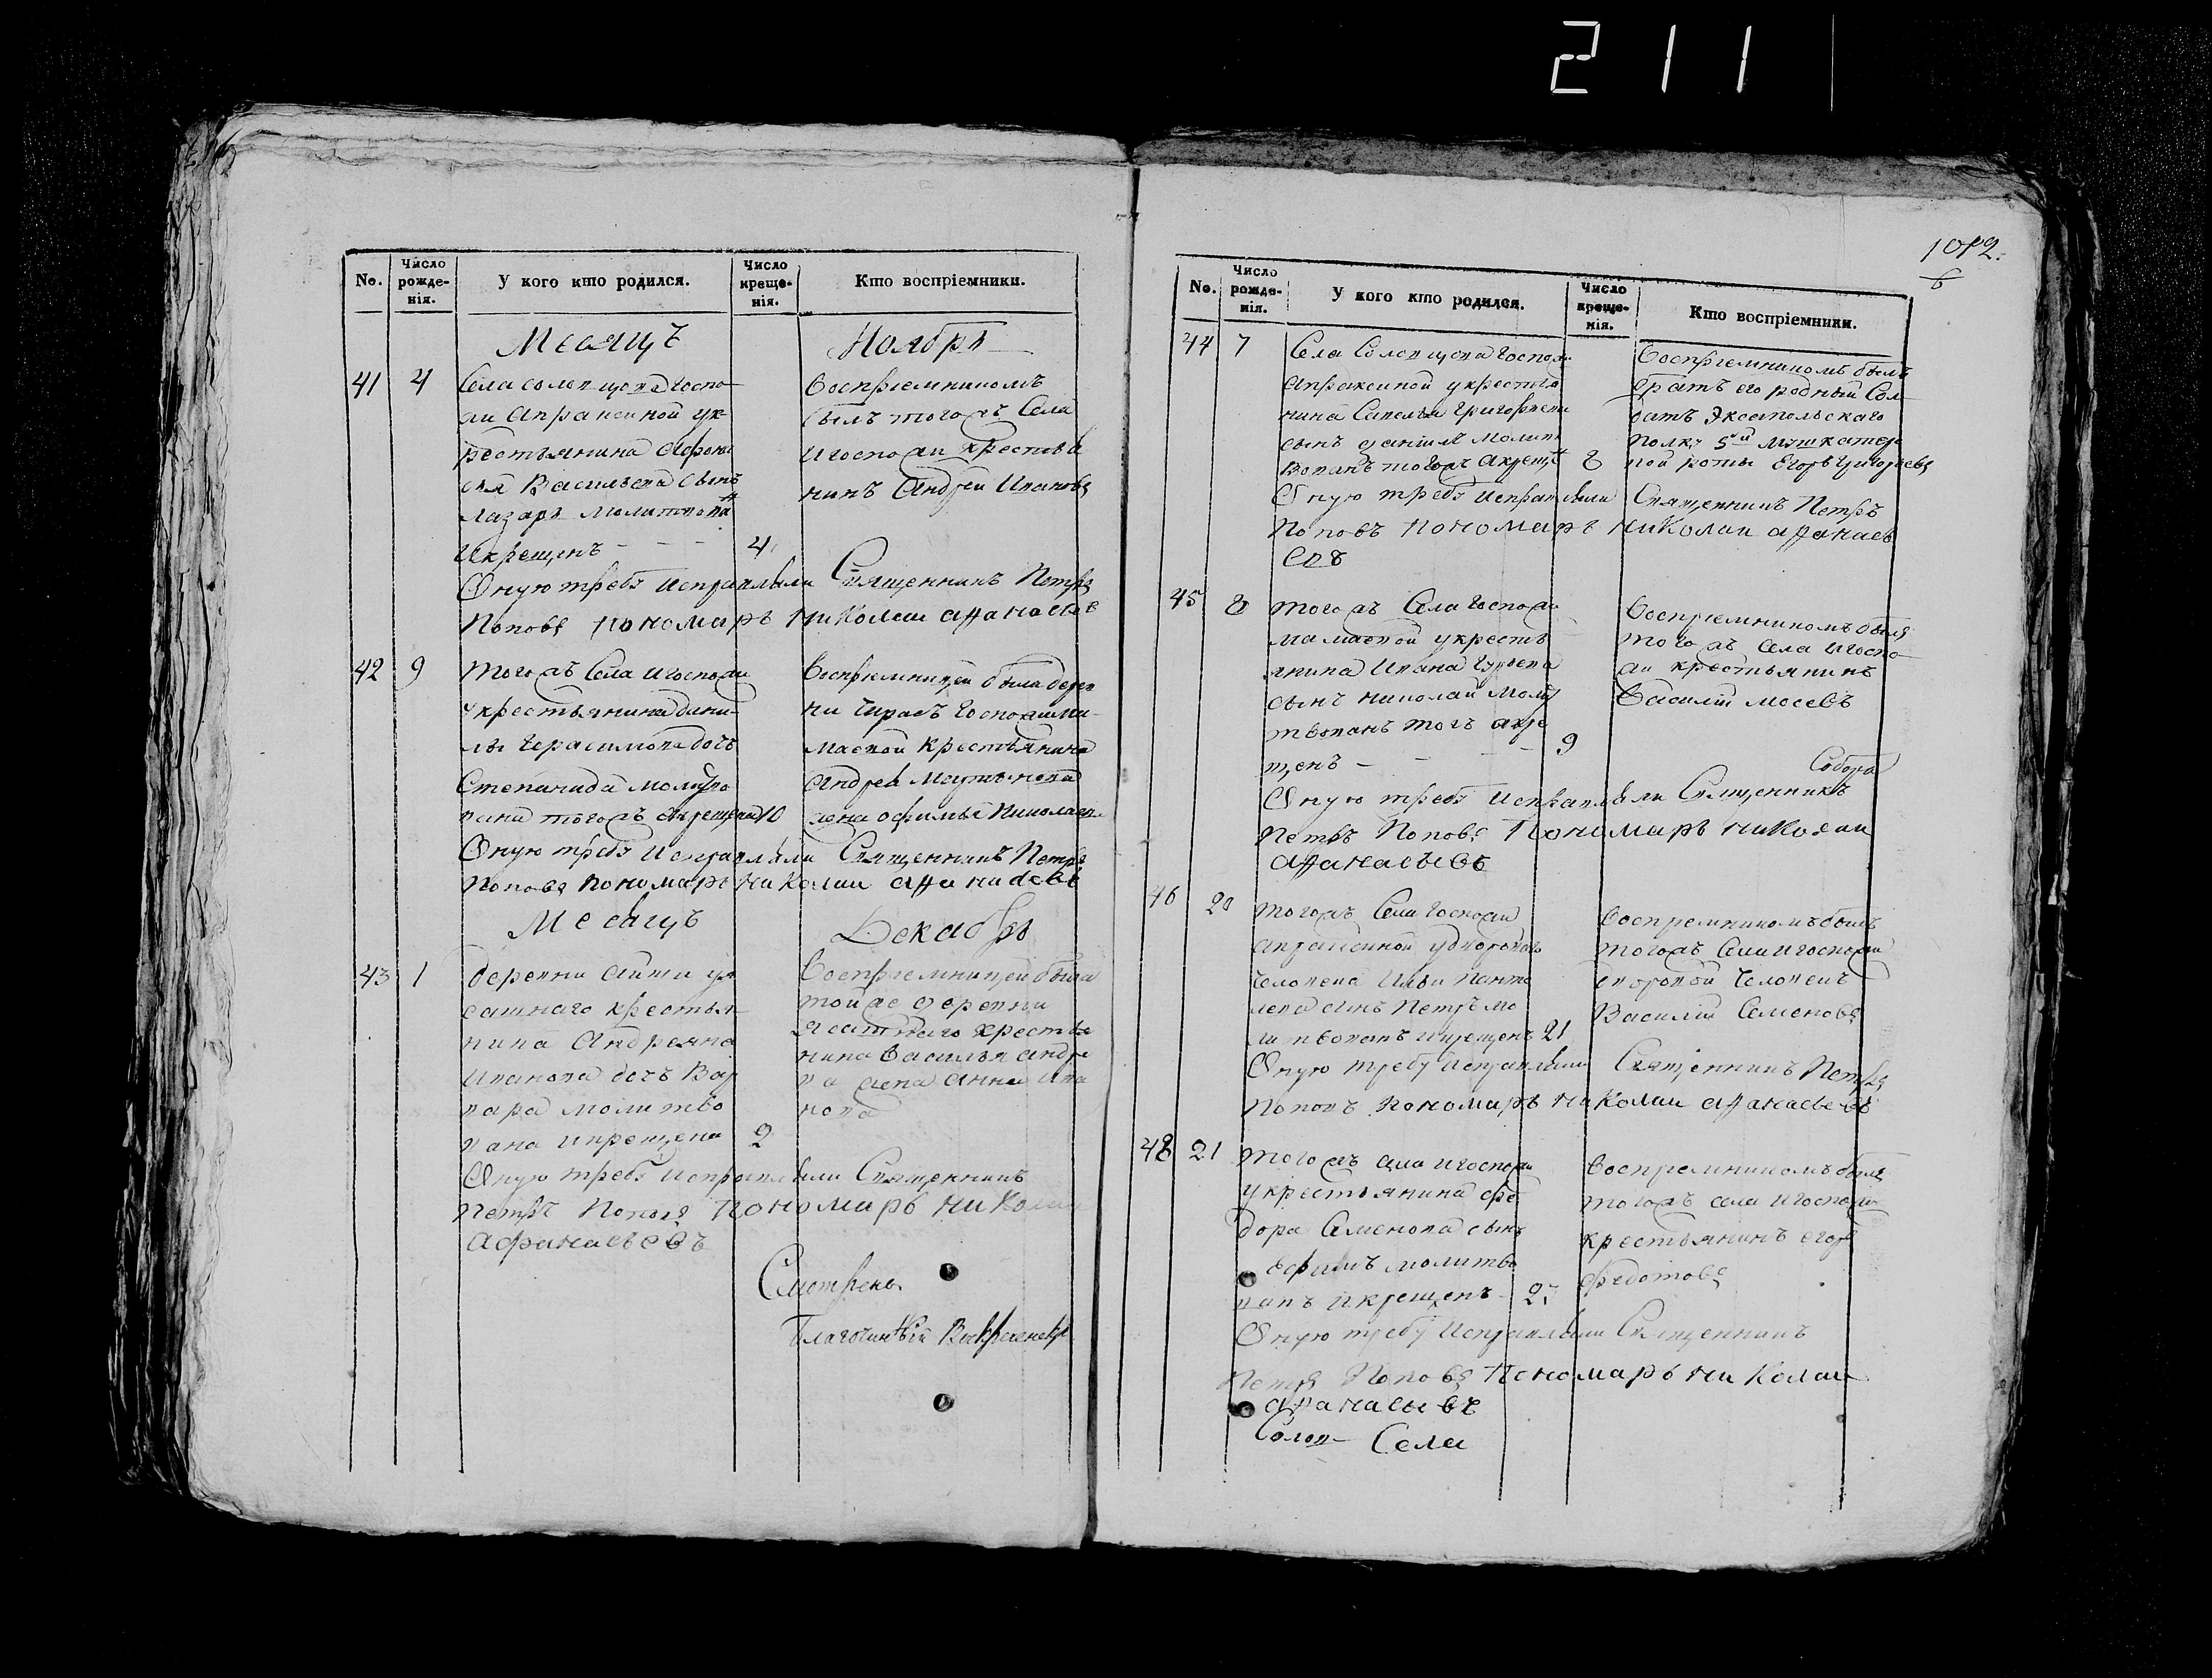 211
1012.
6
No.
Число рожде- нія.
У кого кто родился.
Число креще- нія.
Кто воспріемники.
Месяцъ Ноябрь
41 4 Села солопщона Госпо-
жи Апраксиной ук
рестьянина Афона
сья Васильева сынъ
Лазарь молитвова
Икрещенъ - - - 4
Воспріемникомъ
былъ тогожъ Села
игоспожи крестья
нинъ Андрей Ивановъ
Оную требу исправляли Священникъ Петръ
Поповъ пономарь Николаи афанасьевъ
42 9 тогожъ Села игоспожи
укрестьянина дани-
лы Герасимова дочь
Степанида молитво
вана тогожъ икрещена 10
Воспріемницей была дерев
ни госпожи Ма-
маевой крестьянина
Андрея Мартынова
жена офимья Николаева
Оную требу исправляли Священникъ Петръ
Поповъ пономарь Николаи афанасевъ
Месяцъ Декабрь
43 1 деревни Айши уя
сашнаго крестья-
нина Андреяна
Иванова дочь Вар
вара молитво
вана икрещена 2
Воспріемницей была
тойже деревни
ясашнаго крестья
нина Василья андре
ва жена Анна Ива
нова
Оную требу исправляли Священникъ
Петръ Поповъ пономарь Николаи
афанасьевъ
Смотрено
Благочинный Воскресенскій
No.
Число рожде- нія.
У кого кто родился.
Число креще- нія.
Кто воспріемники.
44 7 Села Солопщона Госпожи
Апраксиной укрестья
нина Савелья Григорьева
сынъ даніилъ молит
вованъ тогожъ икрещенъ 8
Воспріемникомъ былъ
братъ его родный Сол-
датъ
полку 5ой мушкатер
ной роты Егоръ Григорьевъ
Оную требу исправляли Священникъ Петръ
Поповъ пономарь Николаи афанасье
евъ
45 8 тогожъ Села Госпожи
мамаевой укресть
янина Ивана Гурьева
сынъ николай молит
твованъ тогъ икре
щенъ - - - 9
Воспріемникомъ былъ
тогожъ села игоспо-
жи крестьянинъ
Василій мосевъ
Собора
Оную требу исправляли Священникъ
Петръ Поповъ Пономарь Николаи
афанасьевъ
46 20 тогожъ Села Госпожи
апраксиной удворовог
человека Ильи Панте
леева сынъ Петръ мо
литвованъ икрещенъ 21
Воспріемникомъ былъ
тогожъ Села игоспожи
дворовой человекъ
Василій Семеновъ
Оную требу исправляли Священникъ Петръ
Поповъ пономарь Николаи афанасьевъ
48 21 тогожъ села игоспожи
укрестьянина фе
дора Семенова сынъ
ефимъ молитво
ванъ икрещенъ
Воспріемникомъ былъ
тогожъ села игоспожи
крестьянинъ егоръ
федотовъ
Оную требу исправляли Священникъ
Петръ Поповъ Пономарь Николаи
афанасьевъ
Солоп- Села